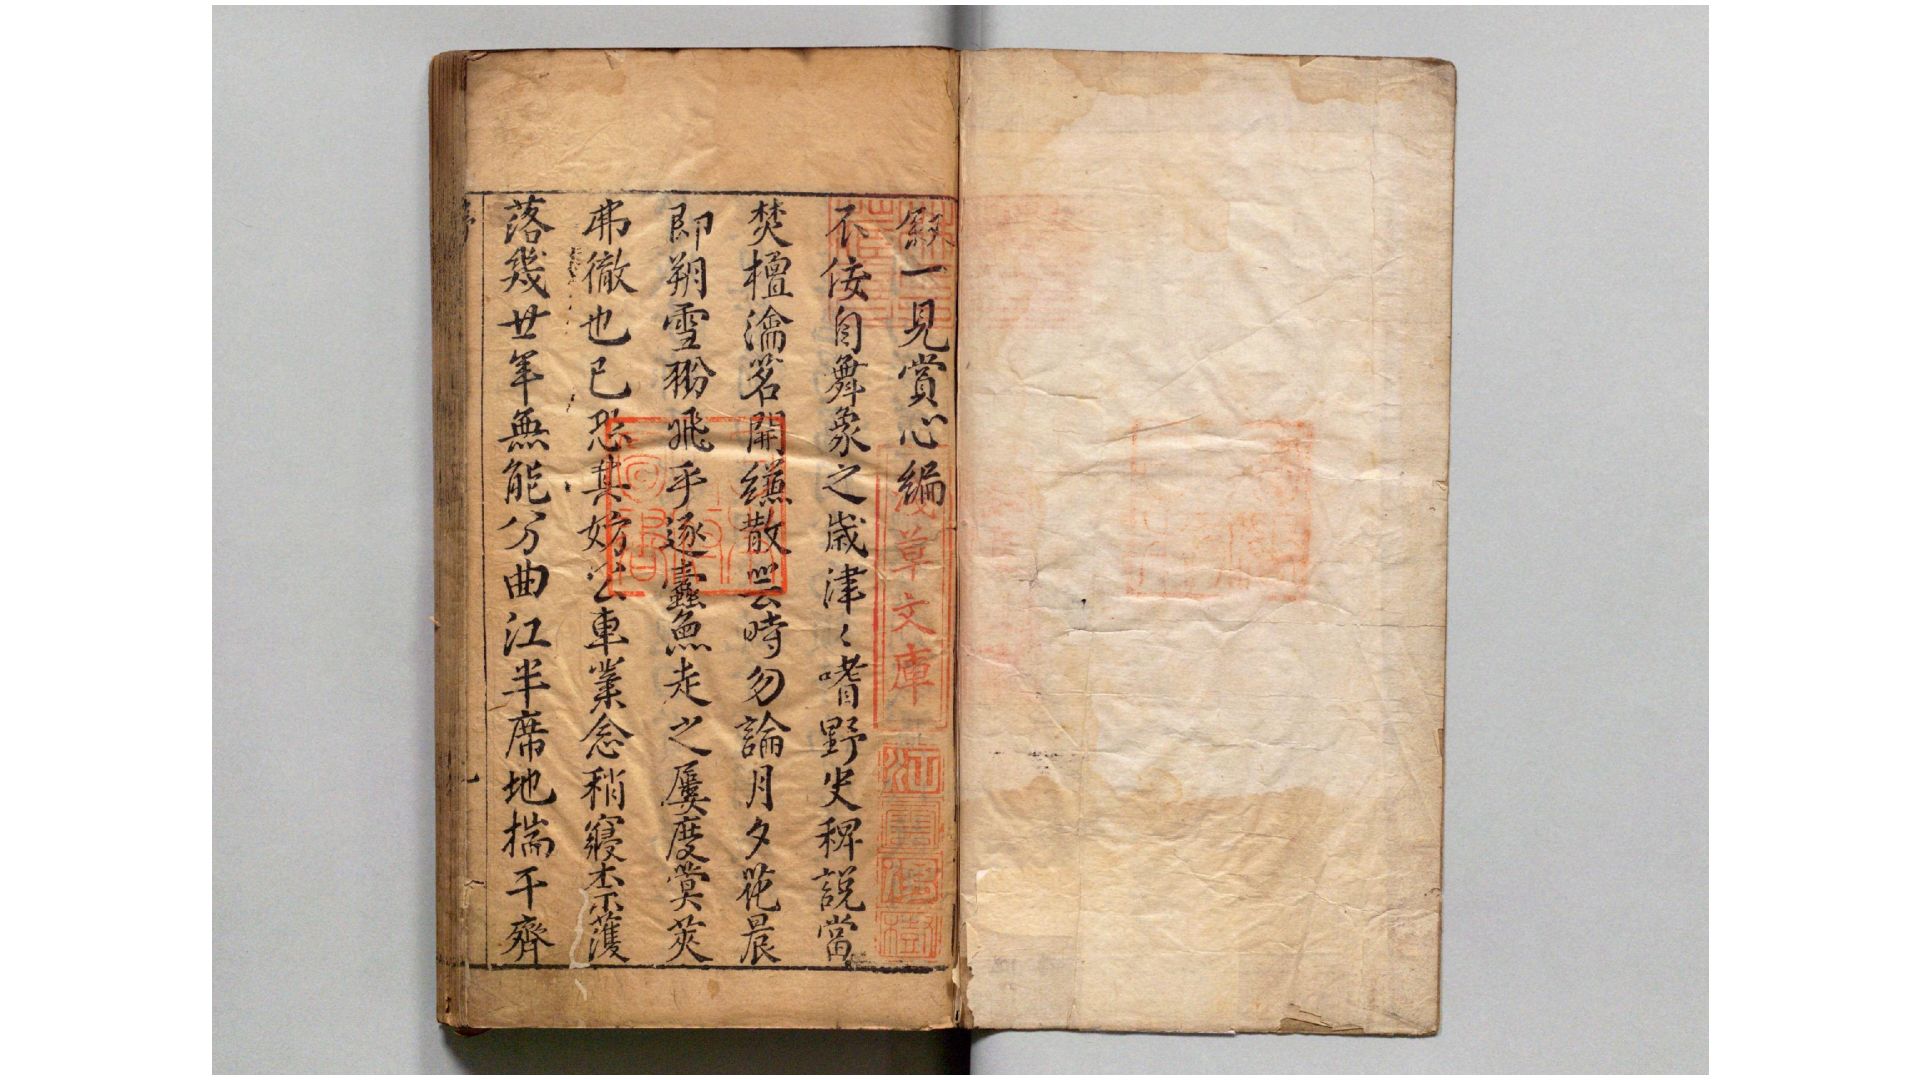 敘一見賞心編
不佞自舞象之歲津〻嗜野史稗說當
焚檀瀹茗開縹散帙時勿論月夕花晨
即朔雪粉飛手逐蠹魚走之屢度蓂莢
弗徹也已恐其妨公車業念稍寢柰濩
落幾廿年無能分曲江半席地揣干齊
淺草文庫